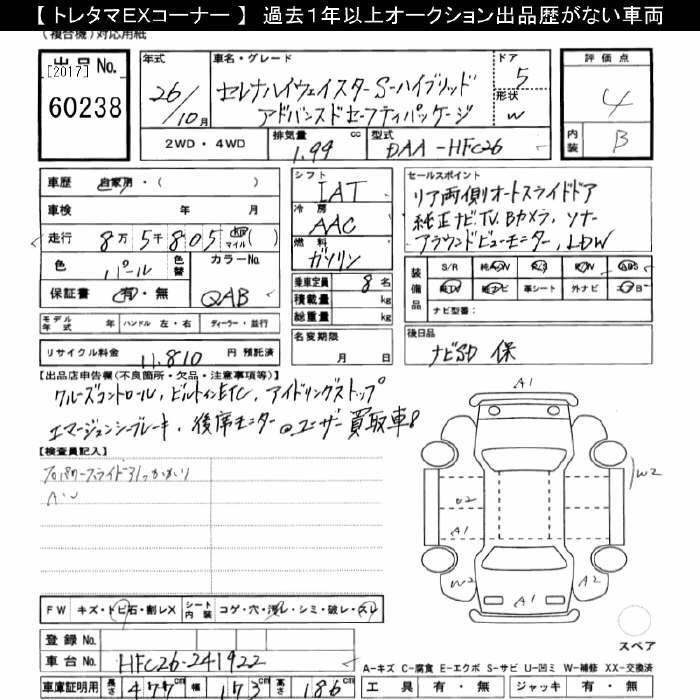 【 トレタマEXコーナー 】 過去１年以上オークション出品歴がない車両
(複合機)対応用紙
出品No.
[2017]
60238
年式
26/10月
車名・グレード
セレナハイウェイスターS-ハイブリッド
アドバンスドセーフティパッケージ
ドア
5
形状
W
評価点
4
内装
B
2WD・4WD
排気量
1.99 cc
型式
DAA-HFC26
車歴 自家用・( )
車検 年 月
走行 8万5千805 km マイル ( )
色 パール 色替
カラーNo.
QAB
保証書 有・無
シフト
IAT
冷房
AAC
燃料
ガソリン
乗車定員 8 名
積載量 kg
総重量 kg
セールスポイント
リア両側オートスライドドア
純正ナビTV、Bカメラ、ソナー
アラウンドビューモニター、LDW
装備品
S/R 純
ABS
純TV 純ナビ 革シート 外ナビ エアB
ナビ型番:
モデル年式 年 ハンドル 左・右 ディーラー・並行
名変期限
月 日
後日品
ナビSD 保
リサイクル料金 11,810 円 預託済
【出品店申告欄(不良箇所・欠品・注意事項等)】
クルーズコントロール, ビルトインETC, アイドリングストップ
エマージェンシーブレーキ、後席モニター ユーザー買取車
【検査員記入】
スライド引っかかり
A1
W2
U2
A1
W2
A2
A1
FW キズ・トビ石・割レX シート内装 コゲ・穴・汚レ・シミ・破レ・スレ
スペア
登録No.
車台No. HFC26-241922
A-キズ C-腐食 E-エクボ S-サビ U-凹ミ W-補修 XX-交換済
車庫証明用 長さ 477cm 幅 173cm 高さ 186cm
工具 有・無 ジャッキ 有・無